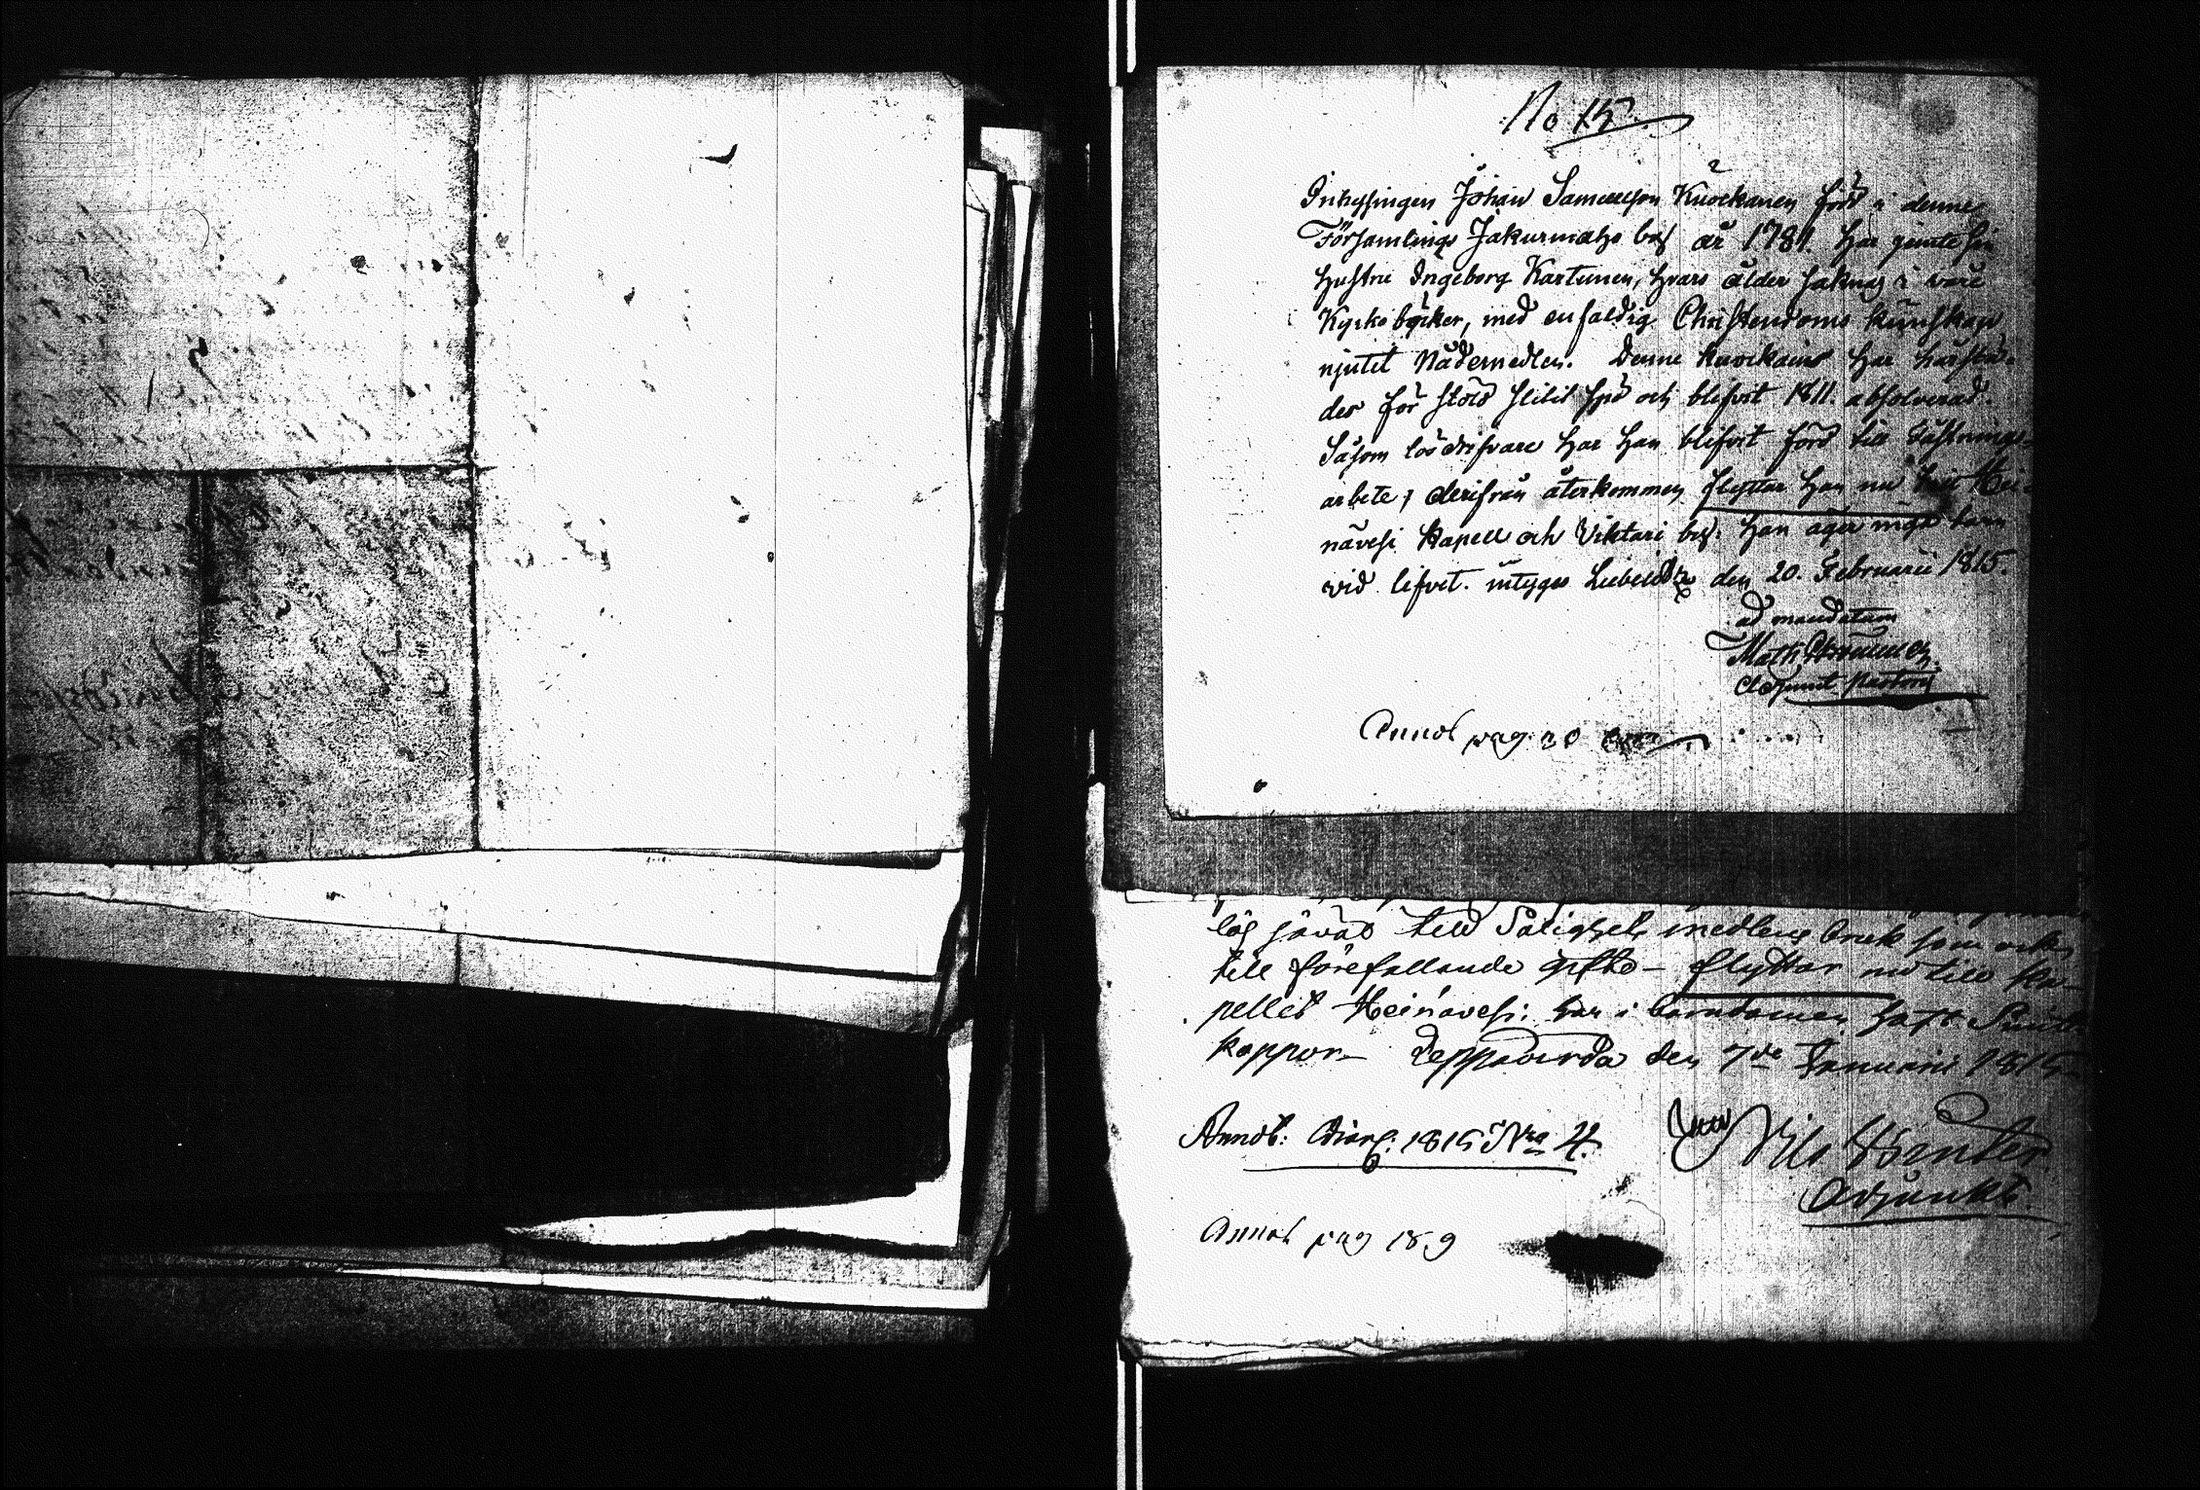 No 15
Inhysingen Johan Samuelsson Kuokanen född i denne
Församlings Jakurmahs by år 1781. har jemte sin
hustru Ingeborg Kartunen, hvars ålder saknas i våre
Kyrko böcker, med enfaldig Christendoms kunskap
njutit Nådemedlen. Denne Kuokain har härstä-
des för stöld slitit spö och blifvit 1811. absolverad.
Såsom lösdrifvare har han blifvit förd till Fästnings-
arbete, derifrån återkommen flyttar han nu till Hei-
nävesi Kapell och Viktari by. han äger inga barn
vid lifvet. intygas Libelitz den 20. Februarii 1815.
ad mandatum
Math.
Adjunct Pastor
Annot pag. 30
till förefallande gifte - flyttar nu till Ka-
pellet Heinävesi: har i barndomen haft
koppor - Leppävirda den 7de Januarii 1815
Annot: 1815 Nro 4.
Nils
Adjunkt.
Annot pag 189